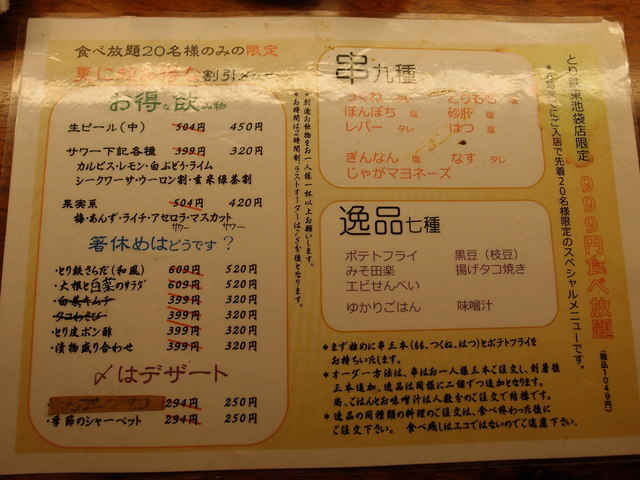 食べ放題20名様のみの限定
更に 割引メニュー
お得な飲み物
生ビール(中) 504円 450円
サワー下記各種 399円 320円
カルピス・レモン・白ぶどう・ライム
シークワーサ・ウーロン割・玄米緑茶割
果実系 504円 420円
梅・あんず・ライチ・アセロラ・マスカット
サワー サワー
箸休めはどうです?
・とり鉄さらだ(和風) 609円 520円
・大根と白菜のサラダ 609円 520円
・白菜キムチ 399円 320円
・タコわさび 399円 320円
・とり皮ポン酢 399円 320円
・漬物盛り合わせ 399円 320円
〆はデザート
294円 250円
・季節のシャーベット 294円 250円
*別途お飲物をお一人様一杯以上お願いします。
*お時間は2時間制、ラストオーダーは
串九種
つくね とりもも 塩
ぼんぼち 塩 砂肝 塩
レバー タレ はつ 塩
ぎんなん 塩 なす タレ
じゃがマヨネーズ
逸品七種
ポテトフライ 黒豆(枝豆)
みそ田楽 揚げタコ焼き
エビせんべい
ゆかりごはん 味噌汁
*まず始めに串三本(もも、つくね、はつ)とポテトフライを
お持ちいたします。
*オーダー方法は、串はお一人様三本ご注文し、到着後
三本追加、逸品は同様に二個ずつ追加となります。
尚、ごはんとお味噌汁は人数分のご注文で結構です。
*逸品の同種類の料理のご注文は、食べ終わった後に
ご注文下さい。 食べ残しはエコではないのでご遠慮下さい。
とり鉄東池袋店限定 999円食べ放題 (税込1049円)
*6時までにご入店で先着20名様限定のスペシャルメニューです。